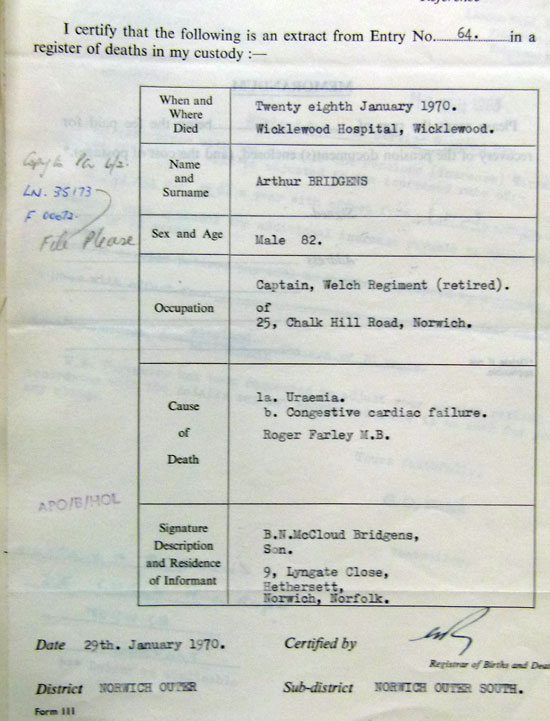 I certify that the following is an extract from Entry No. 64. in a
register of deaths in my custody :—
When and
Where
Died
Twenty eighth January 1970.
Wicklewood Hospital, Wicklewood.
LN. 35173
File Please
Name
and
Surname
Arthur BRIDGENS
Sex and Age
Male 82.
Occupation
Captain, Welch Regiment (retired).
of
25, Chalk Hill Road, Norwich.
Cause
of
Death
1a. Uraemia.
b. Congestive cardiac failure.
Roger Farley M.B.
APO/B/HOL
Signature
Description
and Residence
of Informant
B.N.McCloud Bridgens,
Son.
9, Lyngate Close,
Hethersett,
Norwich, Norfolk.
Date 29th. January 1970. Certified by
Registrar of Births and
District NORWICH OUTER Sub-district NORWICH OUTER SOUTH.
Form 111